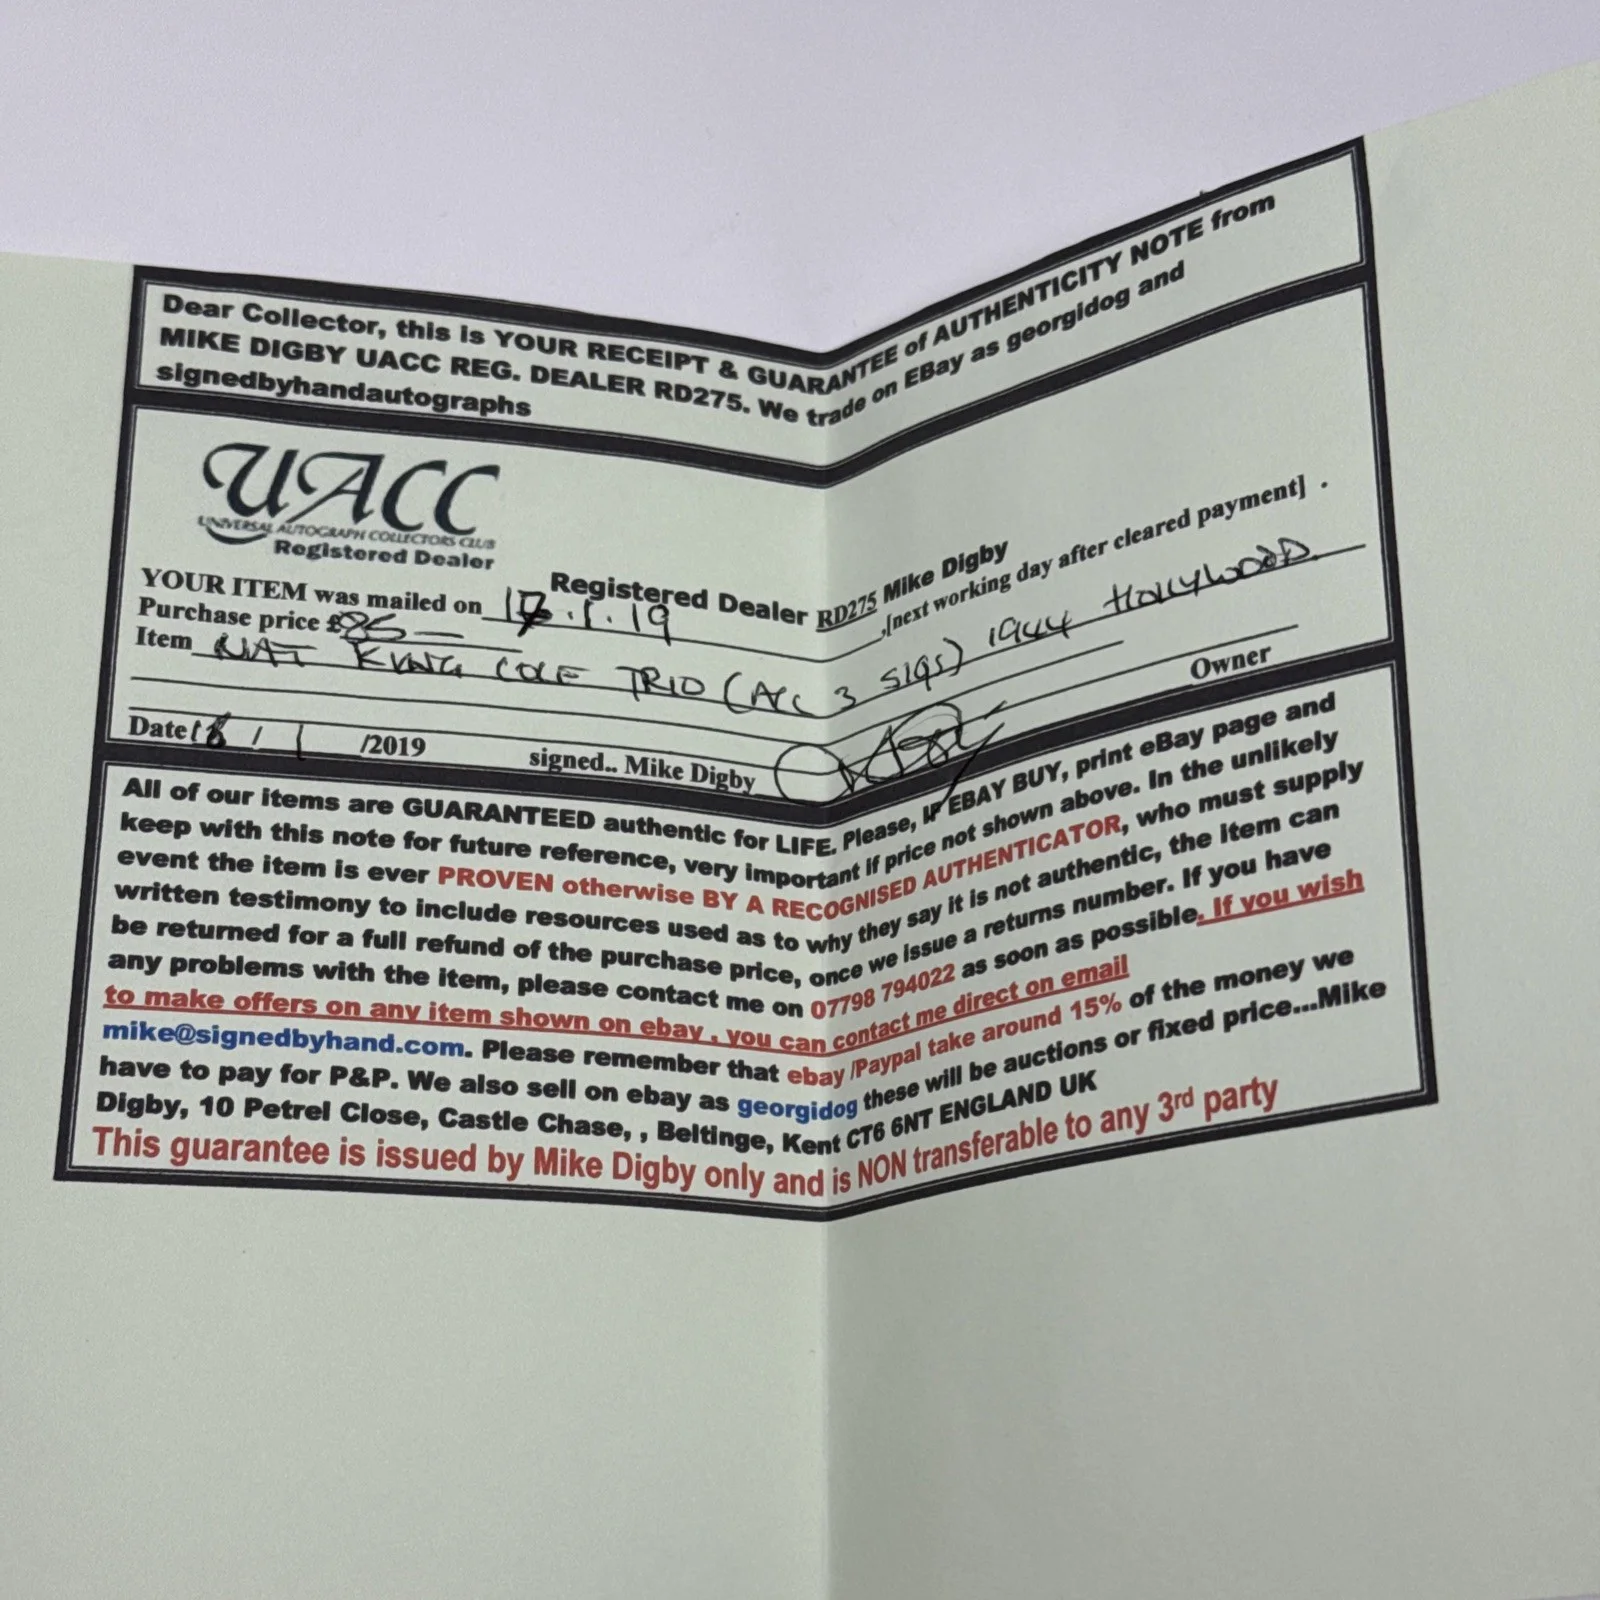 Dear Collector, this is YOUR RECEIPT & GUARANTEE of AUTHENTICITY NOTE from
MIKE DIGBY UACC REG. DEALER RD275. We trade on EBay as georgidog and
signedbyhandautographs
UACC
UNIVERSAL AUTOGRAPH COLLECTORS CLUB
Registered Dealer
Registered Dealer RD275 Mike Digby
YOUR ITEM was mailed on 17.1.19 ,[next working day after cleared payment] .
Purchase price £85—
Item NAT KING COLE TRIO (ALL 3 SIGS) 1944 HOLLYWOOD
Date 18 / 1 /2019 signed.. Mike Digby Owner
All of our items are GUARANTEED authentic for LIFE. Please, IF EBAY BUY, print eBay page and
keep with this note for future reference, very important if price not shown above. In the unlikely
event the item is ever PROVEN otherwise BY A RECOGNISED AUTHENTICATOR, who must supply
written testimony to include resources used as to why they say it is not authentic, the item can
be returned for a full refund of the purchase price, once we issue a returns number. If you have
any problems with the item, please contact me on 07798 794022 as soon as possible. If you wish
to make offers on any item shown on ebay , you can contact me direct on email
mike@signedbyhand.com. Please remember that ebay /Paypal take around 15% of the money we
have to pay for P&P. We also sell on ebay as georgidog these will be auctions or fixed price...Mike
Digby, 10 Petrel Close, Castle Chase, , Beltinge, Kent CT6 6NT ENGLAND UK
This guarantee is issued by Mike Digby only and is NON transferable to any 3rd party